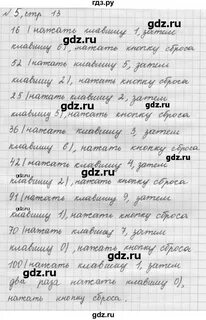 gdz.ru
№ 5, стр. 13
16 (нажать клавишу 1, затем
клавишу 6), нажать кнопку сброса
52 (нажать клавишу 5, затем
клавишу 2), нажать кнопку сброса
25 (нажать клавишу 2, затем
клавишу 5), нажать кнопку сброса
36 (нажать клавишу 3, затем
клавишу 6), нажать кнопку сброса
42 (нажать клавишу 4, затем
клавишу 2), нажать кнопку сброса
91 (нажать клавишу 9, затем
клавишу 1), нажать кнопку сброса
70 (нажать клавишу 7, затем
клавишу 0), нажать кнопку сброса
100 (нажать клавишу 1, затем
два раза нажать клавишу 0),
нажать кнопку сброса.
gdz.ru